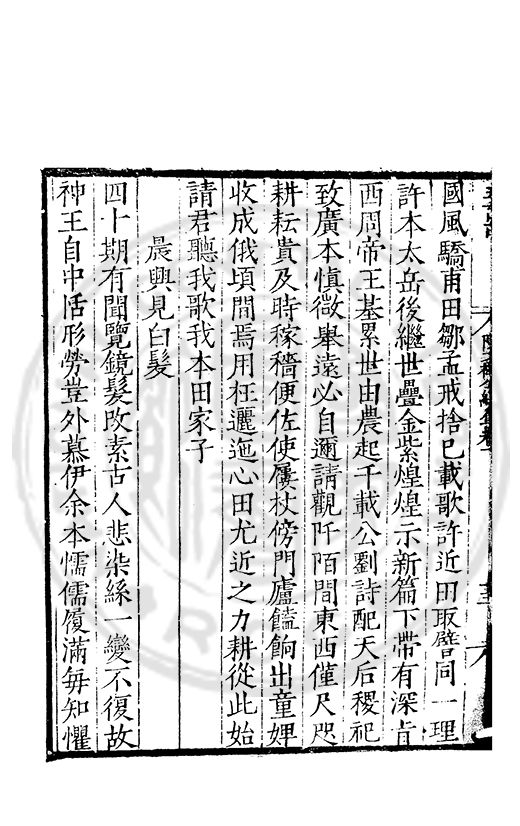 國風驕甫田鄒孟戒捨已載歌許近田取譬同一理
許本太岳後繼世疊金紫煌煌示新篇下帶有深肯
西周帝王基累世由農起千載公劉詩配天后稷祀
致廣本慎微舉遠必自邇請觀阡陌間東西僅尺咫
耕耘貴及時稼穡便佐使屨杖傍門廬饁餉出童婢
收成俄頃間焉用枉邐迤心田尤近之力耕從此始
請君聽我歌我本田家子
晨興見白髮
四十期有聞覽鏡髮改素古人悲染絲一變不復故
神王自中恬形勞豈外慕伊余本懦儒履滿每知懼